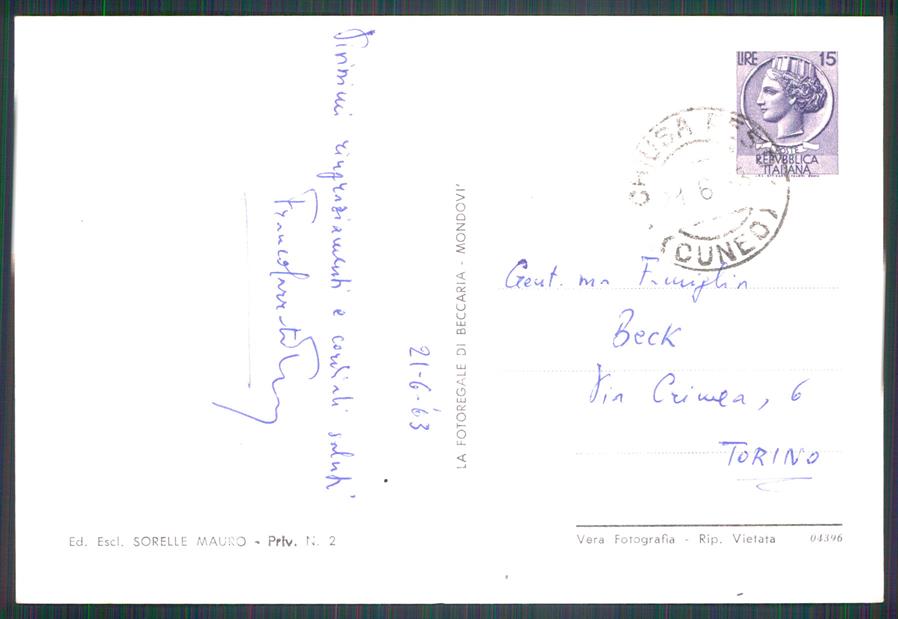 Vivissimi ringraziamenti e cordiali saluti
21-6-63
LA FOTOREGALE DI BECCARIA - MONDOVI'
Ed. Escl. SORELLE MAURO - Priv. N. 2
LIRE 15
POSTE
REPVBBLICA
ITALIANA
CHIUSA PES
6
(CUNEO)
Gent.ma Famiglia
Beck
Via Crimea, 6
TORINO
Vera Fotografia - Rip. Vietata 04396